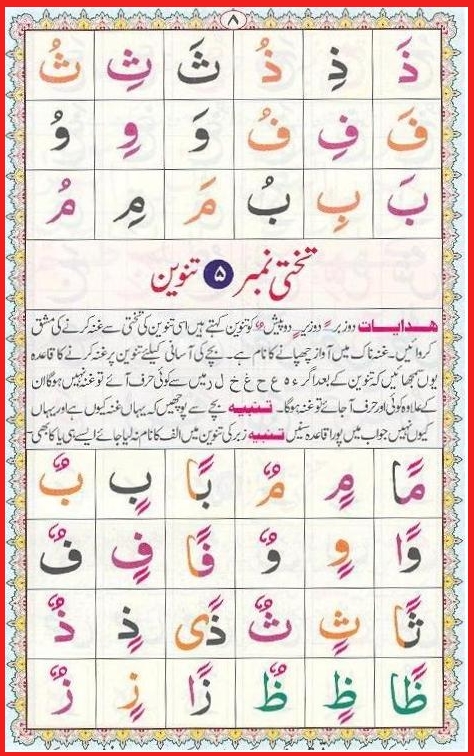 ۸
ذَ ذِ ذُ ثَ ثِ ثُ
فَ فِ فُ وَ وِ وُ
بَ بِ بُ مَ مِ مُ
تختی نمبر ۵ تنوین
ھدایات دوزبر ً دوزیر ٍ دوپیش ٌ کو تنوین کہتے ہیں اسی تنوین کی تختی سے غنہ کرنے کی مشق
کروائیں۔ غنہ ناک میں آواز چھپانے کا نام ہے۔ بچے کی آسانی کیلئے تنوین پر غنہ کرنے کا قاعدہ
یوں سمجھائیں کہ تنوین کے بعد اگر ء ہ ع ح غ خ ل ر میں سے کوئی حرف آئے تو غنہ نہیں ہوگا ان
کے علاوہ کوئی اور حرف آجائے تو غنہ ہوگا۔ تنبیه بچے سے پوچھیں کہ یہاں غنہ کیوں ہے اور یہاں
کیوں نہیں جواب میں پورا قاعدہ سنیں تنبیه زبر کی تنوین میں الف کا نام نہ لیا جائے ایسے ہی یا کا بھی-
مًا مٍ مٌ بًا بٍ بٌ
وًا وٍ وٌ فًا فٍ فٌ
ثًا ثٍ ثٌ ذًى ذٍ ذٌ
ظًا ظٍ ظٌ زًا زٍ زٌ